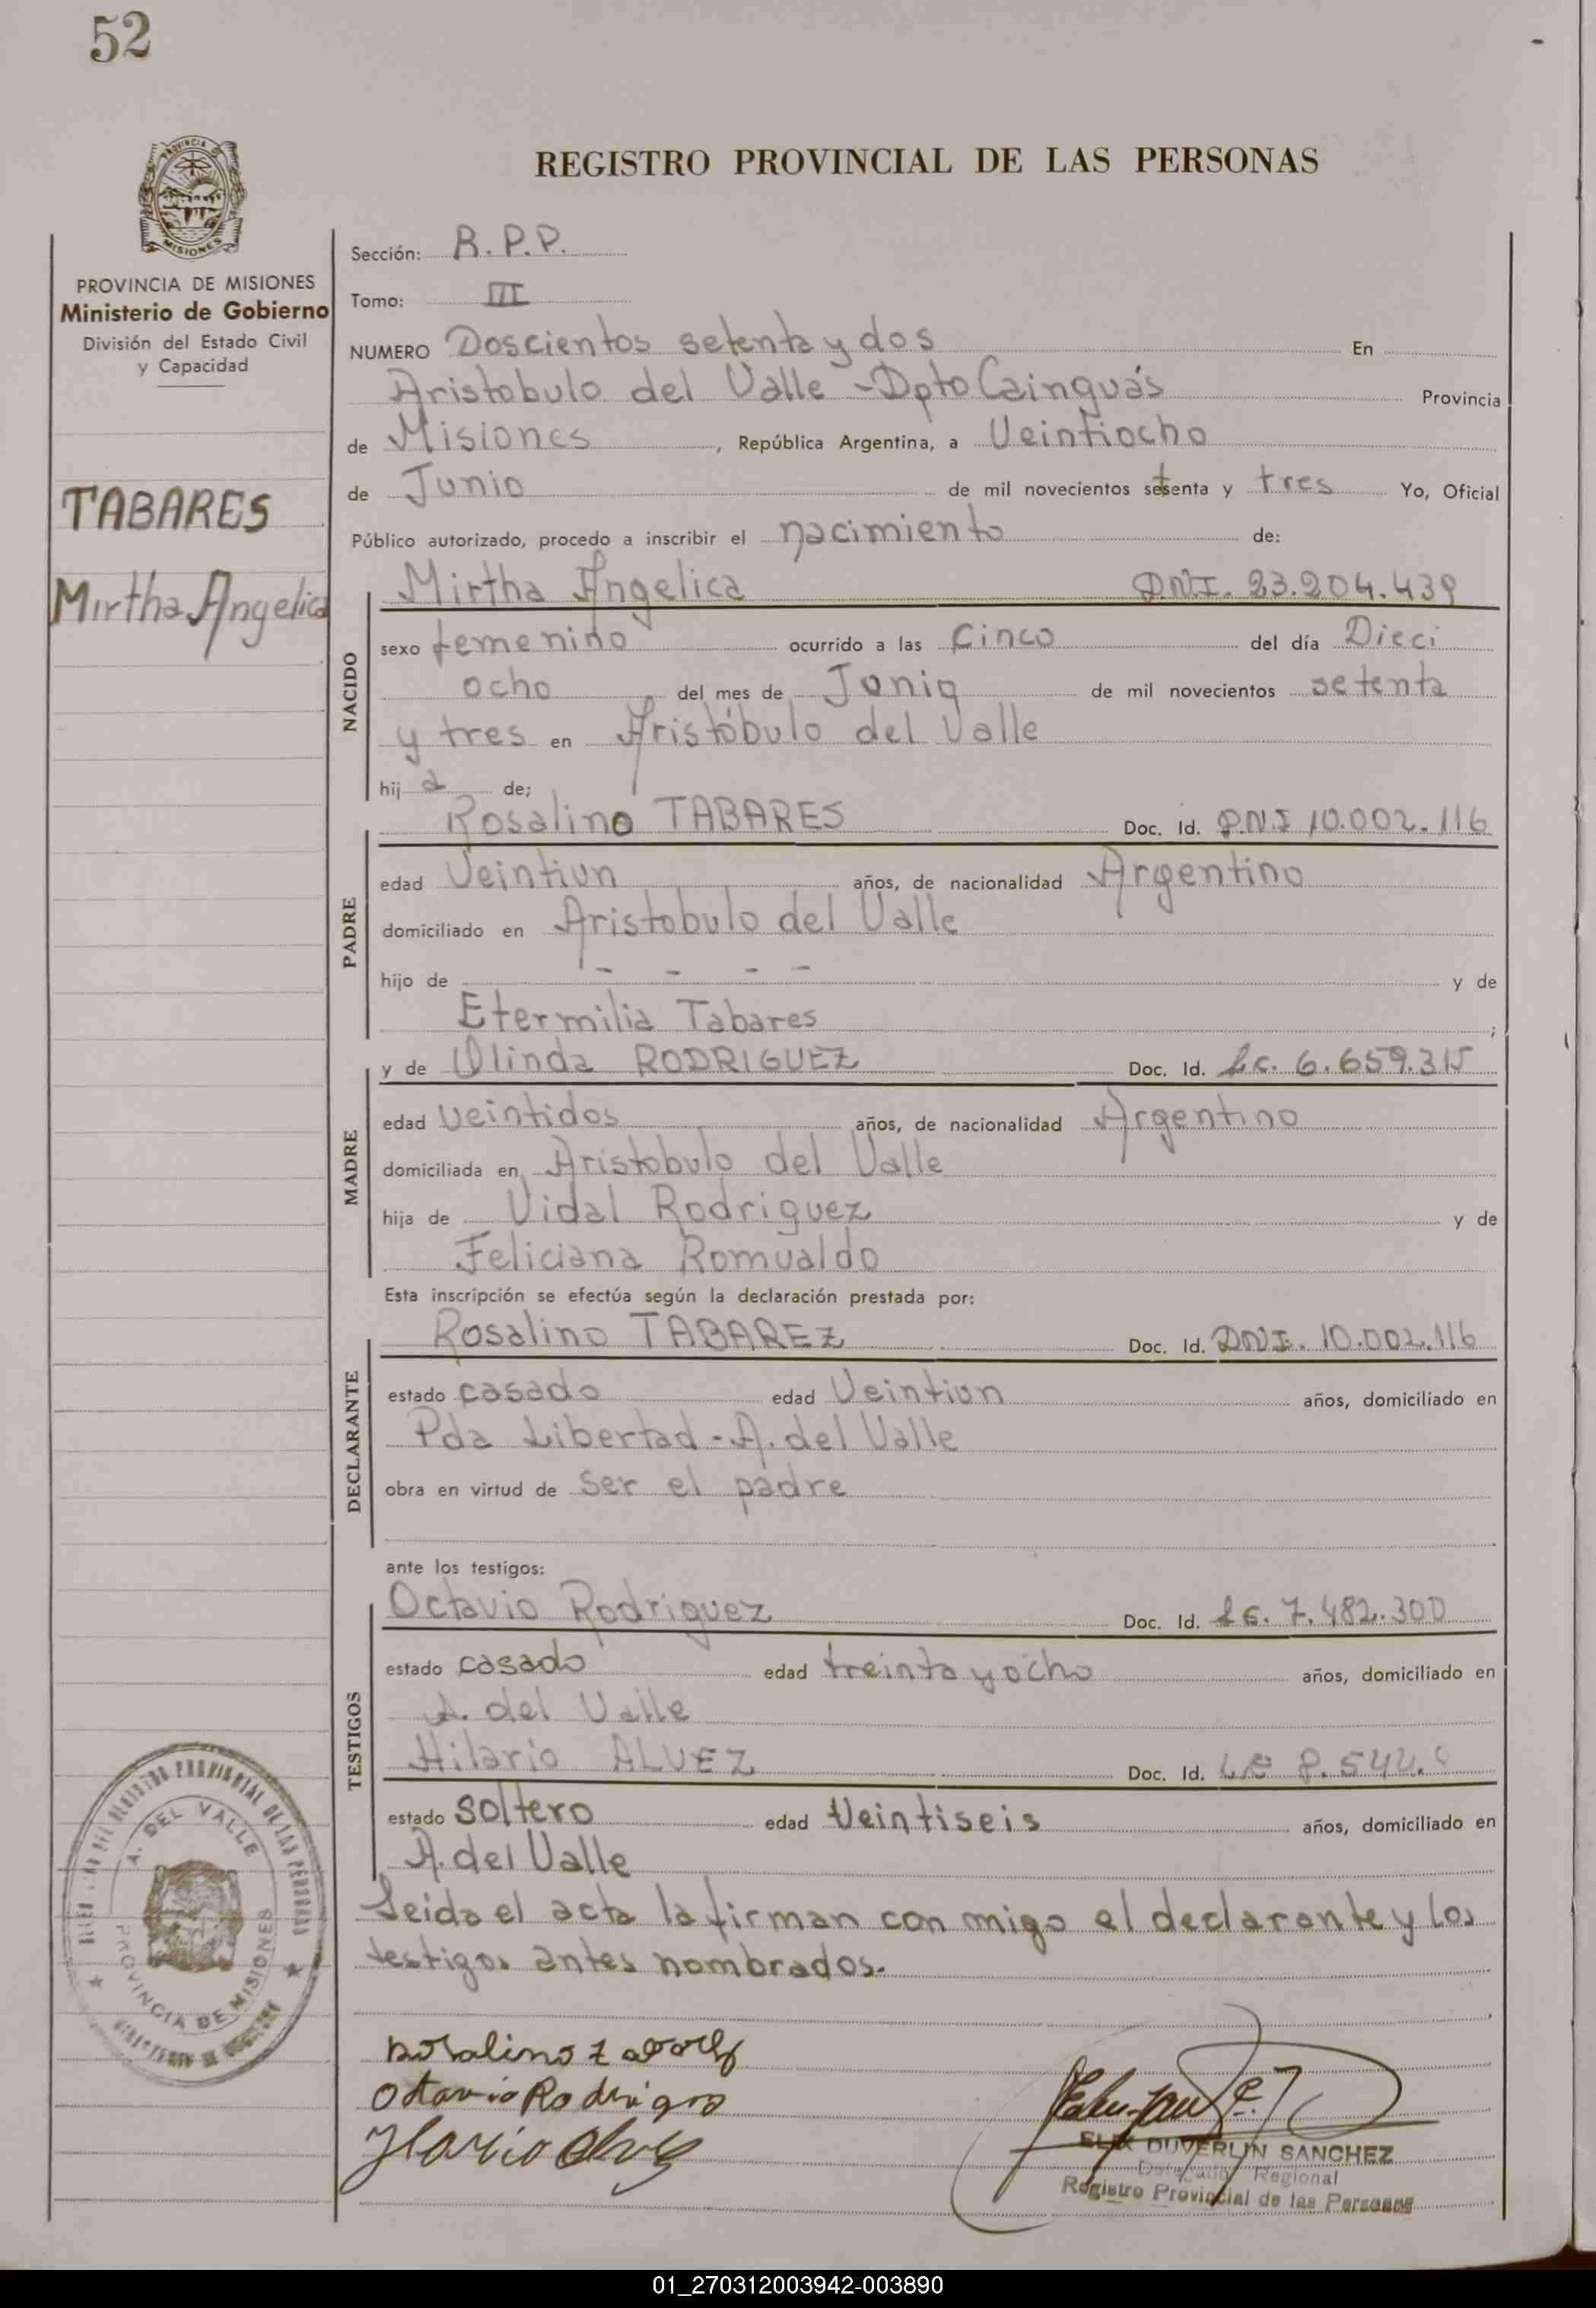 52
REGISTRO PROVINCIAL DE LAS PERSONAS
PROVINCIA DE MISIONES
Ministerio de Gobierno
División del Estado Civil
y Capacidad
TABARES
Mirtha Angelica
Sección: R.P.P.
Tomo: III
NUMERO Doscientos setenta y dos En
Aristobulo del Valle - Dpto Cainguás Provincia
de Misiones, República Argentina, a Veintiocho
de Junio de mil novecientos setenta y tres Yo, Oficial
Público autorizado, procedo a inscribir el nacimiento de:
NACIDO
Mirtha Angelica D.N.I. 23.204.439
sexo femenino ocurrido a las Cinco del día Dieci
ocho, del mes de Junio de mil novecientos setenta
y tres en Aristóbulo del Valle
hij a de;
PADRE
Rosalino TABARES Doc. Id. D.N.I 10.002.116
edad Veintiun años, de nacionalidad Argentino
domiciliado en Aristobulo del Valle
hijo de - - - - y de
Etermilia Tabares ;
MADRE
y de Olinda RODRIGUEZ Doc. Id. L.C. 6.659.315
edad veintidos años, de nacionalidad Argentino
domiciliada en Aristobulo del Valle
hija de Vidal Rodriguez y de
Feliciana Romualdo
Esta inscripción se efectúa según la declaración prestada por:
DECLARANTE
Rosalino TABAREZ Doc. Id. DNI. 10.002.116
estado casado edad Veintiun años, domiciliado en
Pda Libertad - A. del Valle
obra en virtud de ser el padre
ante los testigos:
TESTIGOS
Octavio Rodriguez Doc. Id. LE. 7.482.300
estado casado edad treinta y ocho años, domiciliado en
A. del Valle
Hilario ALVEZ Doc. Id. LE
estado soltero edad Veintiseis años, domiciliado en
A. del Valle
Leida el acta la firman con migo el declarante y los
testigos antes nombrados.
A. DEL VALLE
PROVINCIA DE MISIONES
Rosalino
Otavio Rodrigos
DUVERLIN SANCHEZ
Delegado Regional
Registro Provincial de las Personas
01_270312003942-003890